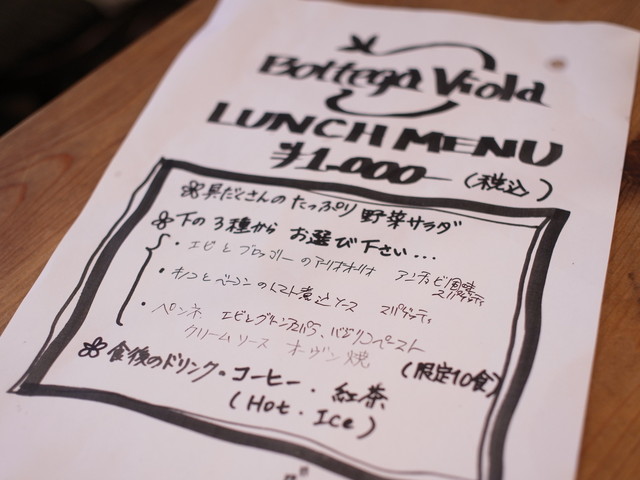 Bottega Viola
LUNCH MENU
¥1.000-(税込)
具だくさんの たっぷり 野菜サラダ
下の3種から お選び下さい…
・エビとブロッコリーのアーリオオーリオ アンチョビ風味
スパゲッティ
・キノコとベーコンのトマト煮込ソース スパゲッティ
・ペンネ エビと バジリコペースト
クリームソース オーヴン焼
(限定10食)
食後のドリンク・コーヒー・紅茶
(Hot・Ice)